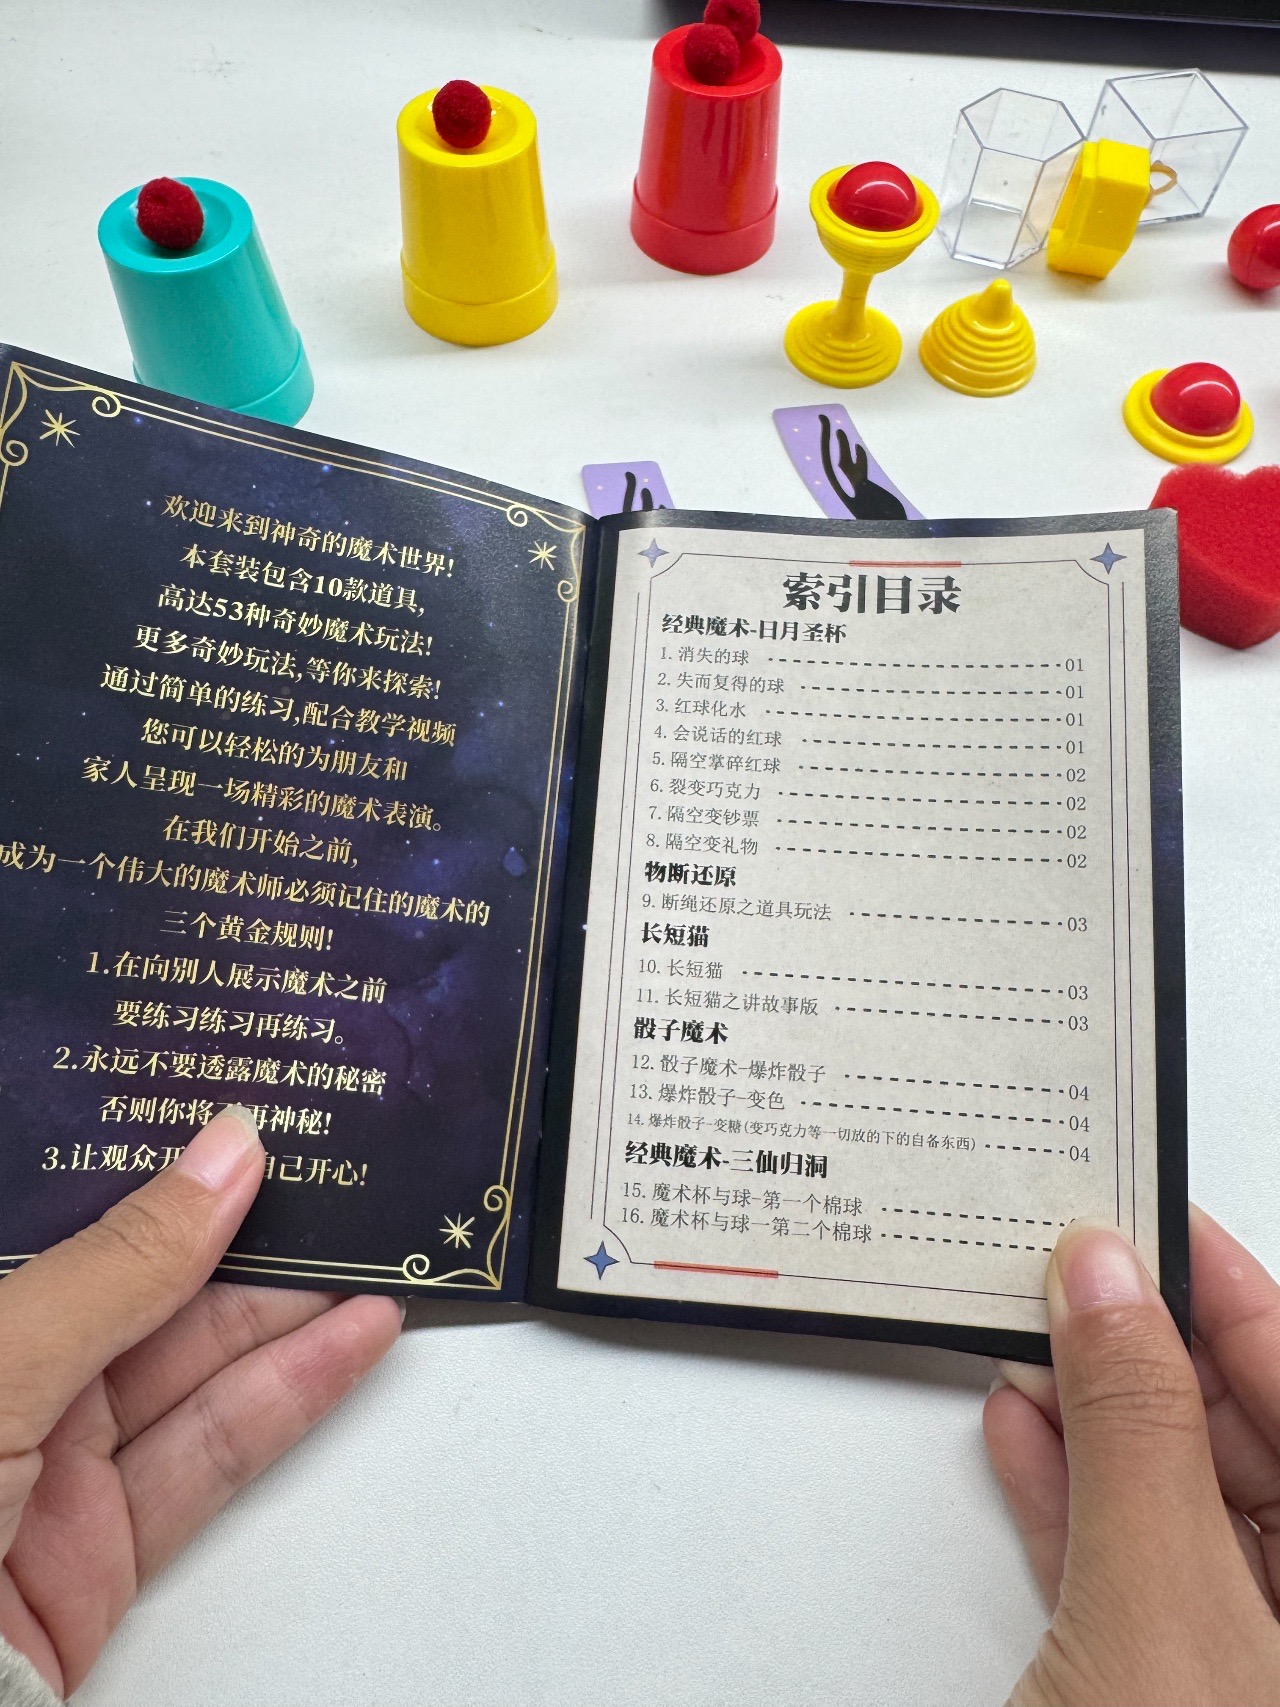 欢迎来到神奇的魔术世界!
本套装包含10款道具,
高达53种奇妙魔术玩法!
更多奇妙玩法,等你来探索!
通过简单的练习,配合教学视频
您可以轻松的为朋友和
家人呈现一场精彩的魔术表演。
在我们开始之前,
成为一个伟大的魔术师必须记住的魔术的
三个黄金规则!
1.在向别人展示魔术之前
要练习练习再练习。
2.永远不要透露魔术的秘密
否则你将 再神秘!
3.让观众开 自己开心!
索引目录
经典魔术-日月圣杯
1. 消失的球 01
2. 失而复得的球 01
3. 红球化水 01
4. 会说话的红球 01
5. 隔空掌碎红球 02
6. 裂变巧克力 02
7. 隔空变钞票 02
8. 隔空变礼物 02
物断还原
9. 断绳还原之道具玩法 03
长短猫
10. 长短猫 03
11. 长短猫之讲故事版 03
骰子魔术
12. 骰子魔术-爆炸骰子 04
13. 爆炸骰子-变色 04
14. 爆炸骰子-变糖(变巧克力等一切放的下的自备东西) 04
经典魔术-三仙归洞
15. 魔术杯与球-第一个棉球
16. 魔术杯与球一第二个棉球